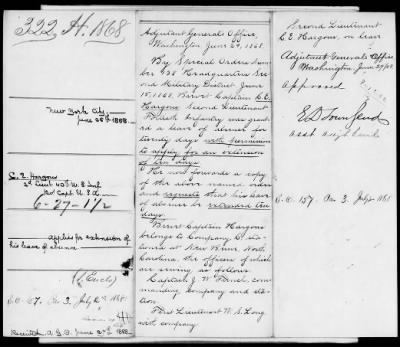 322 H. 1868
New York City
June 25th 1868.
C. E. Hargous
2d Lieut 40th U.S. Inf
Bvt Capt U.S.A
6-27-1 1/2
applies for extension of
his leave of absence
(1 Encl)
Received A.G.O. June 27th 1868.
Adjutant General's Office,
Washington June 29, 1868.
By Special Orders Number
138 Headquarters Second
Military District June
15, 1868, Brevet Captain C. E.
Hargous Second Lieutenant
Infantry was granted
a leave of absence for
twenty days with permission
to apply for an extension
of ten days.
He now forwards a copy
of the above named order
and requests that his leave
of absence be extended ten
days.
Brevet Captain Hargous
belongs to Company stationed
at New Bern, North
Carolina, the officers of which
are serving as follows
Captain J. W. French, commanding
company and station
First Lieutenant W. S. Long
with company.
Second Lieutenant
C. E. Hargous, on leave
Adjutant General's Office
Washington June 29/68
Approved
E D Townsend
Asst Adjt Genl
S.O. 157. Par 3. July 2. 1868